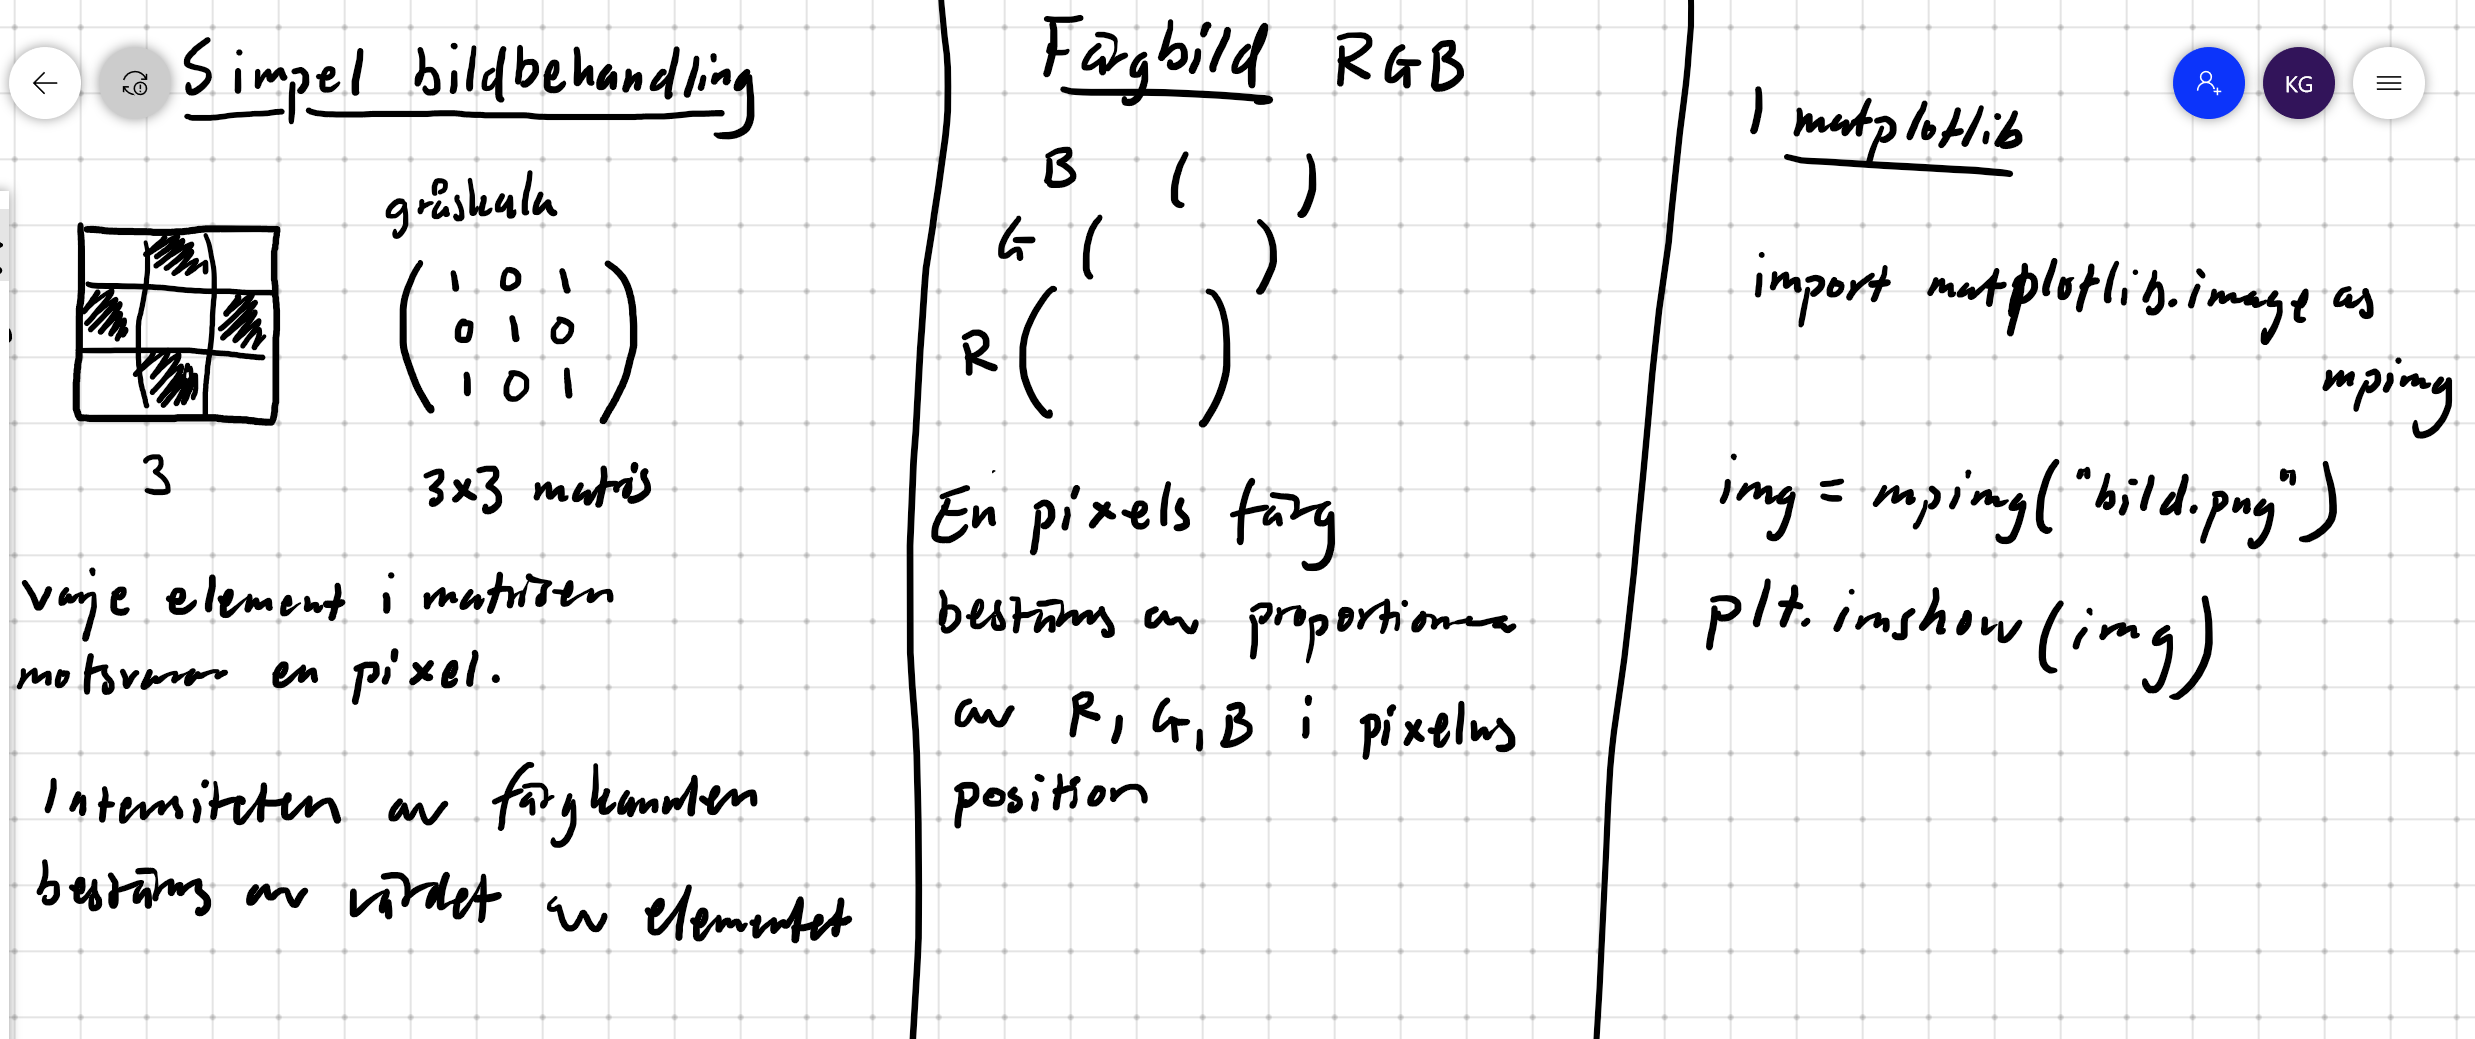 Simpel bildbehandling
gråskala
1 0 1
0 1 0
1 0 1
3
3x3 matris
varje element i matrisen
motsvarar en pixel.
Intensiteten av färgkanalen
bestäms av värdet av elementet
Färgbild RGB
B ( )
G ( )
R ( )
En pixels färg
bestäms av proportionerna
av R, G, B i pixelns
position
KG
I matplotlib
import matplotlib.image as
mpimg
img = mpimg("bild.png")
plt.imshow(img)